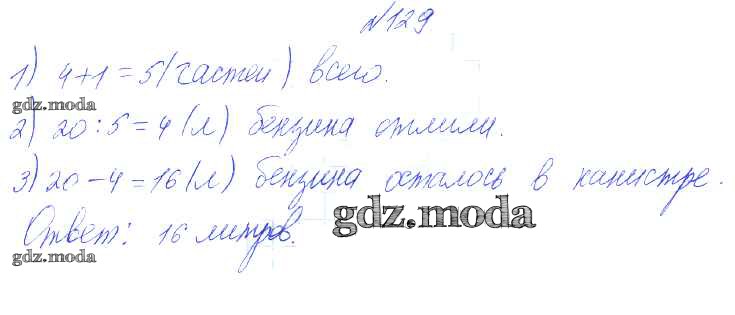 №129
1) 4+1=5 (частей) всего.
gdz.moda
2) 20:5=4 (л) бензина отлили.
3) 20-4=16 (л) бензина осталось в канистре.
gdz.moda
Ответ: 16 литров.
gdz.moda